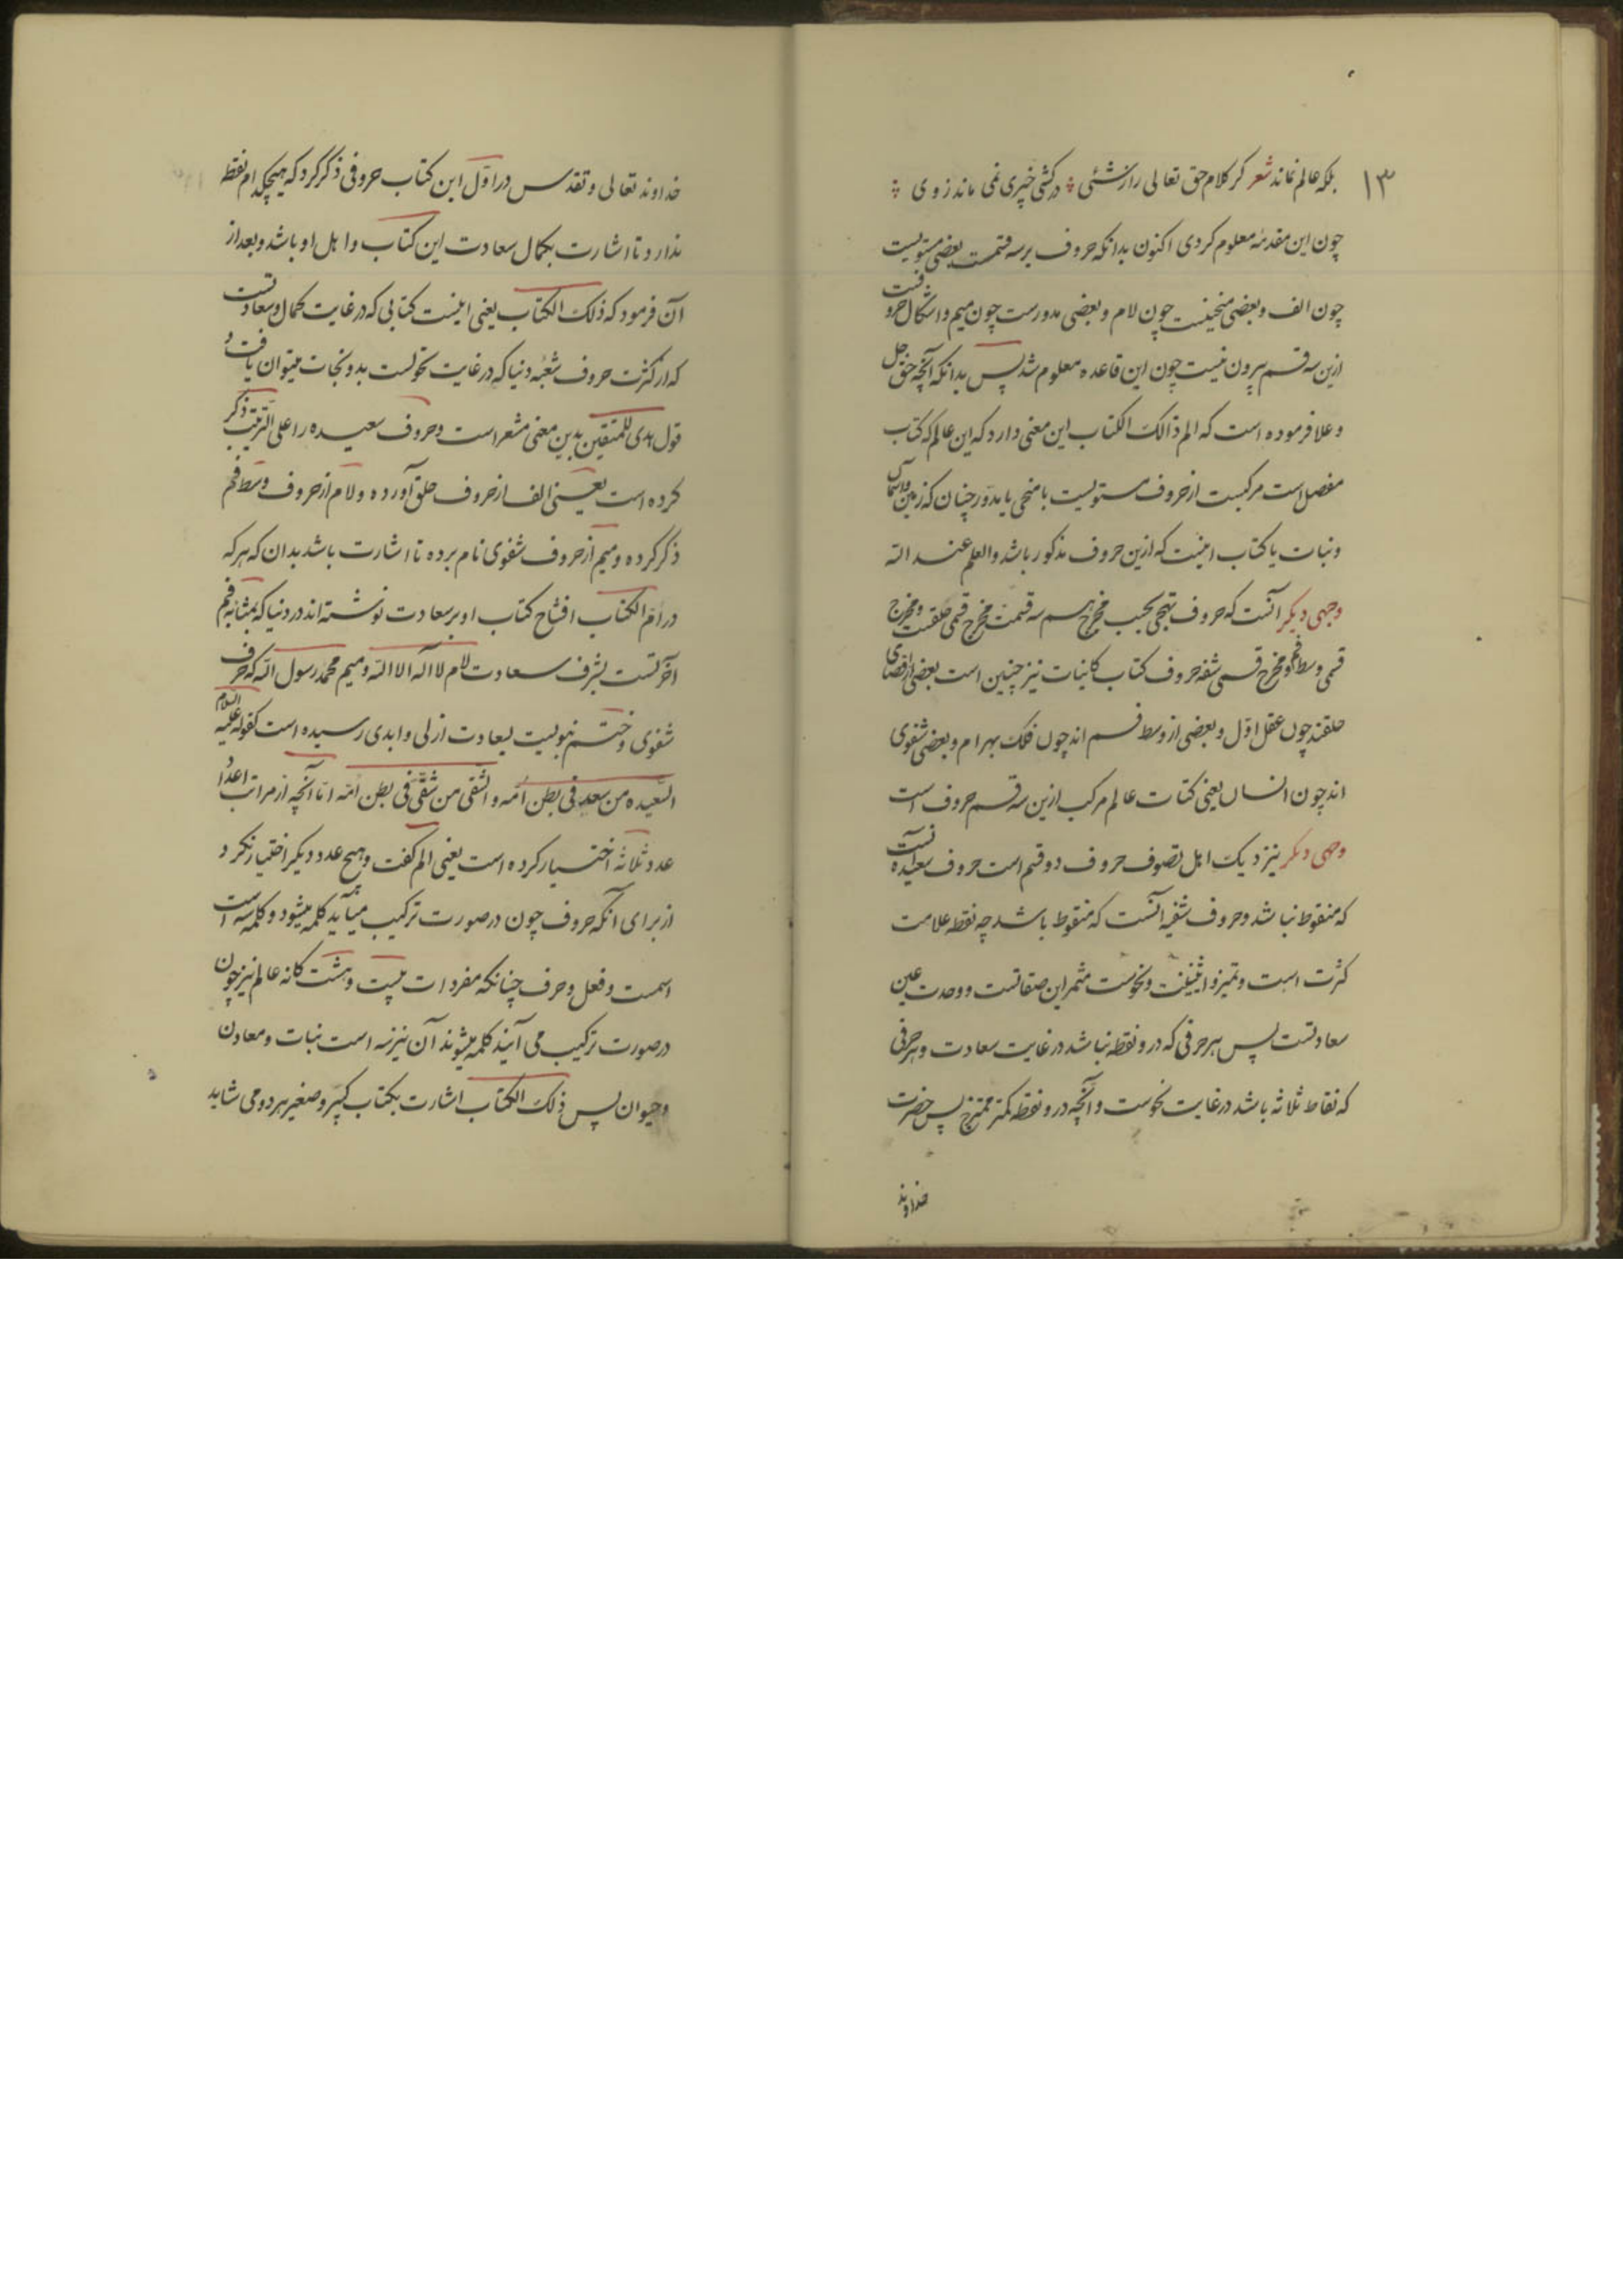 ۱۳
بلکه عالم نماند شعر گر کلام حق تعالی راز شئی درکشی خبری نمی ماند ز وی
چون این مقدمه معلوم کردی اکنون بدانکه حروف بر سه قسمت بعضی مستویست
چون الف و بعضی منحنیست چون لام و بعضی مدورست چون میم و اشکال حروفست
ازین سه قسم بیرون نیست چون این قاعده معلوم شد پس بدانکه آنچه حق جل
و علا فرموده است که الم ذالک الکتاب این معنی دارد که این عالم که کتاب
مفصل است مرکبست از حروف مستویست یا منحنی یا مدور چنان که زمین و آسمان
و نبات یا کتاب اینست که ازین حروف مذکور باشد والعلم عند الله
وجهی دیگر آنست که حروف تهجی بحسب مخرج هم سه قسمت مخرج قسمی حلقست و مخرج
قسمی وسط فم و مخرج قسمی شفه حروف کتاب کاینات نیز چنین است بعضی از اقصای
حلقند چون عقل اول و بعضی از وسط فم اند چون فلک بهرام و بعضی شفوی
اند چون انسان یعنی کتاب عالم مرکب ازین سه قسم حروف است
وجهی دیگر بنزدیک اهل تصوف حروف دو قسم است حروف سعیده آنست
که منقوط نباشد و حروف شقیه آنست که منقوط باشد چه نقطه علامت
کثرت است و تمیز و اثنینیت و نحوست مثمر این صفاتست و وحدت عین
سعادتست پس هر حرفی که درو نقطه نباشد در غایت سعادت و هر حرفی
که نقاط ثلاثه باشد در غایت نحوست و آنچه درو نقطه کمتر ممتزج پس حضرت
خداوند
خداوند تعالی و تقدس در اول این کتاب حروفی ذکر کرد که هیچکدام نقطه
ندارد تا اشارت بکمال سعادت این کتاب و اهل او باشد و بعد از
آن فرمود که ذلک الکتاب یعنی اینست کتابی که در غایت کمال و سعادتست
که از کثرت حروف شعبه دنیا که در غایت نحوست بدو نجات میتوان یافت و
قول هدی للمتقین بدین معنی مشعر است و حروف سعیده را علی الترتیب ذکر
کرده است یعنی الف از حروف حلق آورده و لام از حروف وسط فم
ذکر کرده و میم از حروف شفوی نام برده تا اشارت باشد بدان که هر که
در ام الکتاب افتتاح کتاب او بر سعادت نوشته اند در دنیا که بمثابه فم
آخرتست بشرف سعادت لام لا اله الا الله و میم محمد رسول الله که حرف
شفوی و ختم نبوتست بسعادت ازلی و ابدی رسیده است کقوله علیه السلام
السعیده من سعد فی بطن امه و الشقی من شقی فی بطن امه اما آنچه از مراتب اعداد
عدد ثلاثه اختیار کرده است یعنی الم گفت و هیچ عدد دیگر اختیار نکرد
از برای آنکه حروف چون در صورت ترکیب می آید کلمه میشود و کلمه سه است
اسمست و فعل و حرف چنانکه مفردات بیست و هشت گانه عالم نیز چون
در صورت ترکیب می آیند کلمه میشوند آن نیز سه است نبات و معادن
و حیوان پس ذلک الکتاب اشارت بکتاب کبیر و صغیر هر دو می شاید